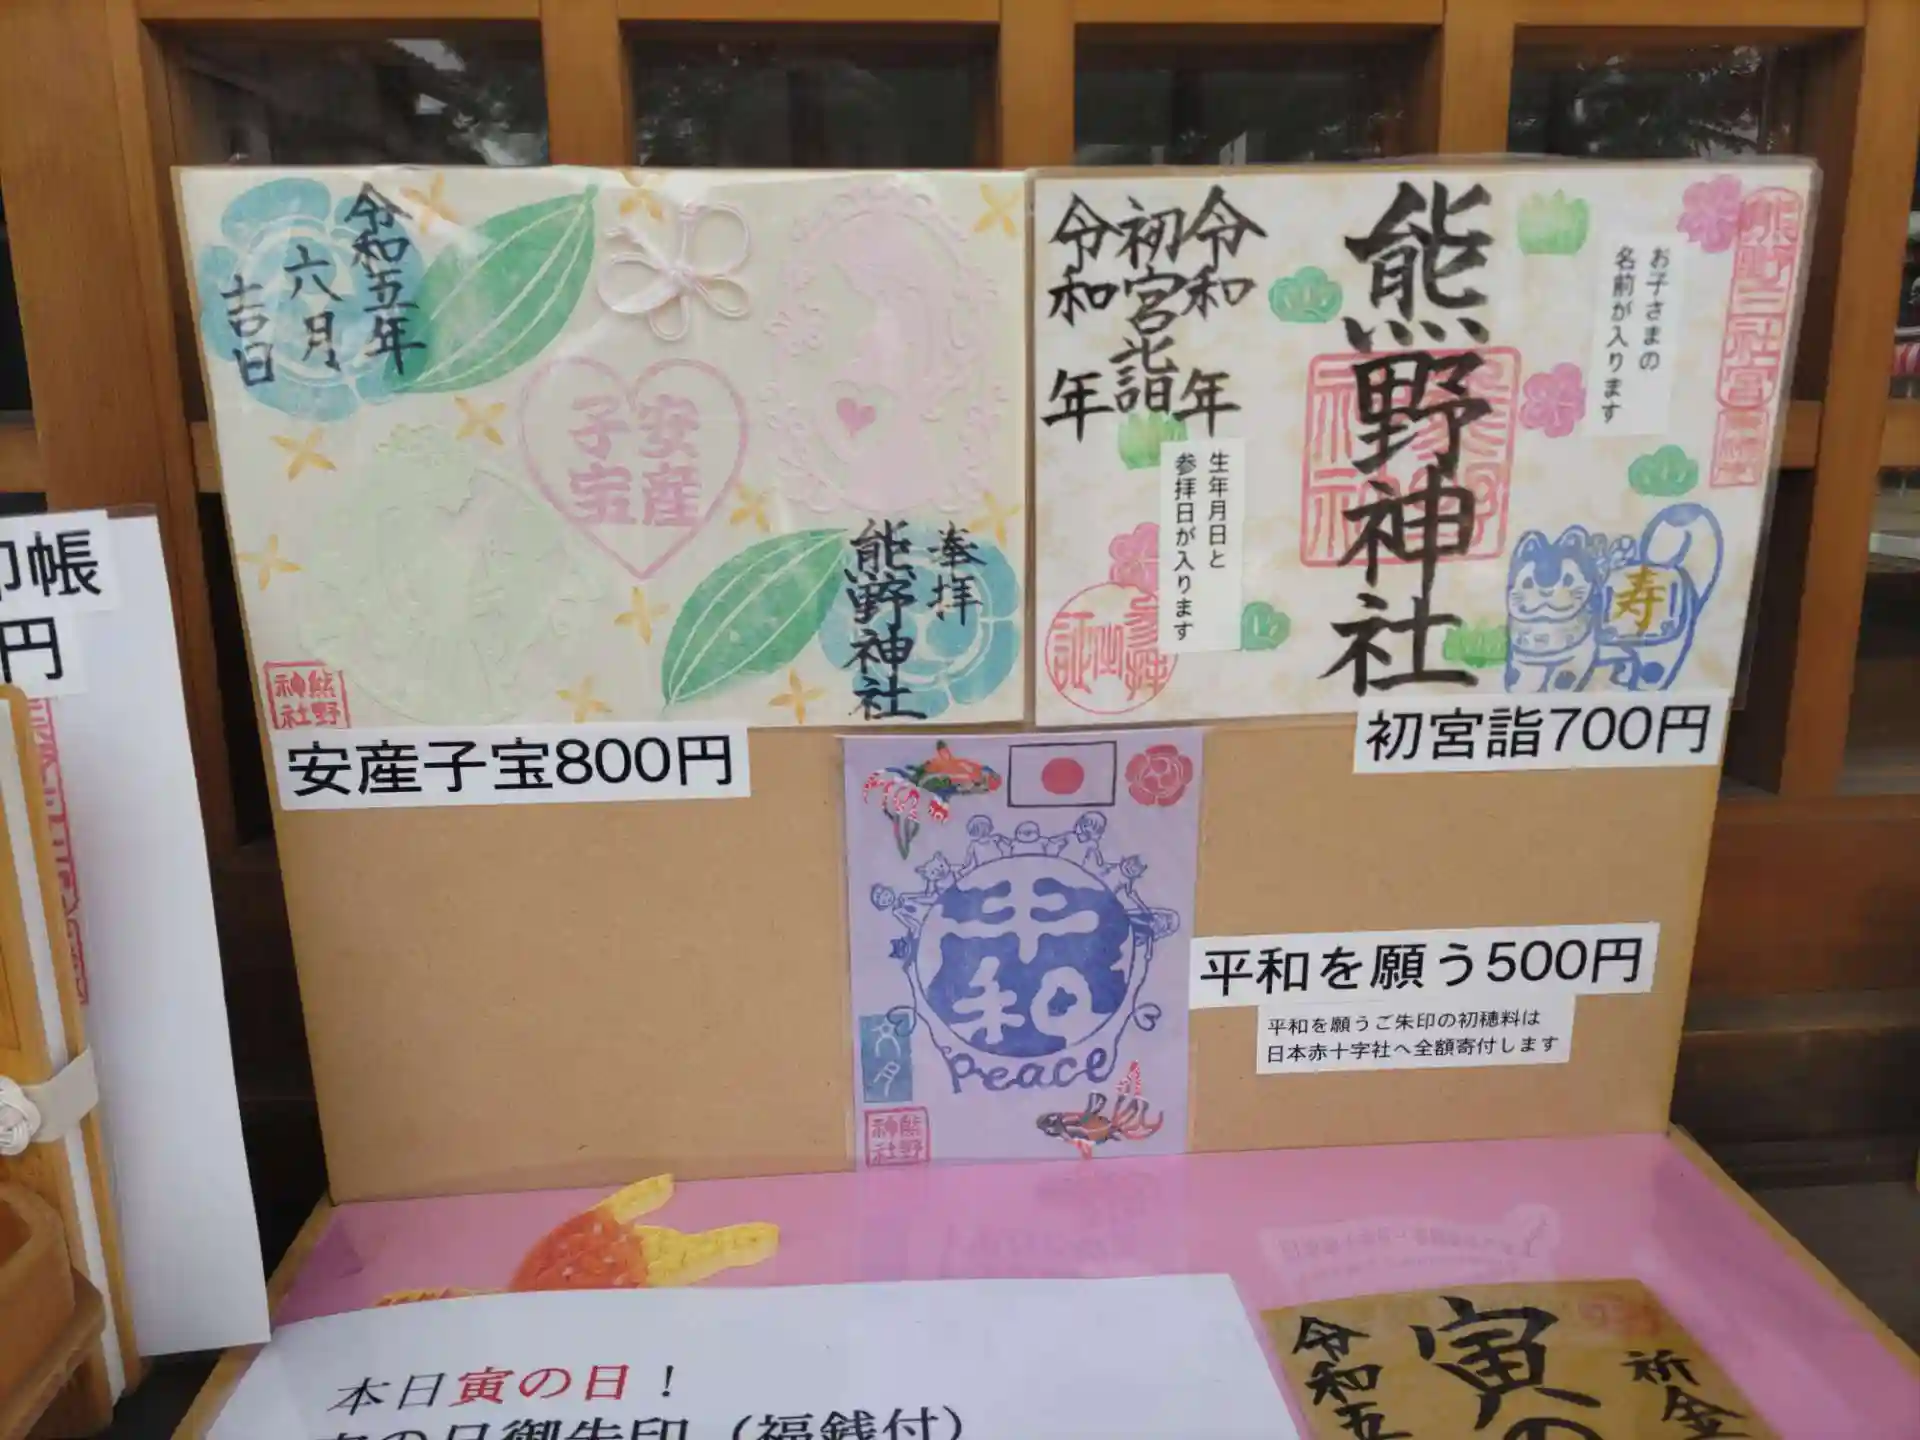 令和五年
六月
吉日
安産
子宝
奉拝
熊野神社
熊野
神社
安産子宝800円
令和 年
初宮詣
令和 年
熊野神社
お子さまの
名前が入ります
生年月日と
参拝日が入ります
寿
初宮詣700円
平和
Peace
文月
熊野
神社
平和を願う500円
平和を願うご朱印の初穂料は
日本赤十字社へ全額寄付します
印帳
円
本日寅の日！
寅の日御朱印（福銭付）
令和五
寅の
祈